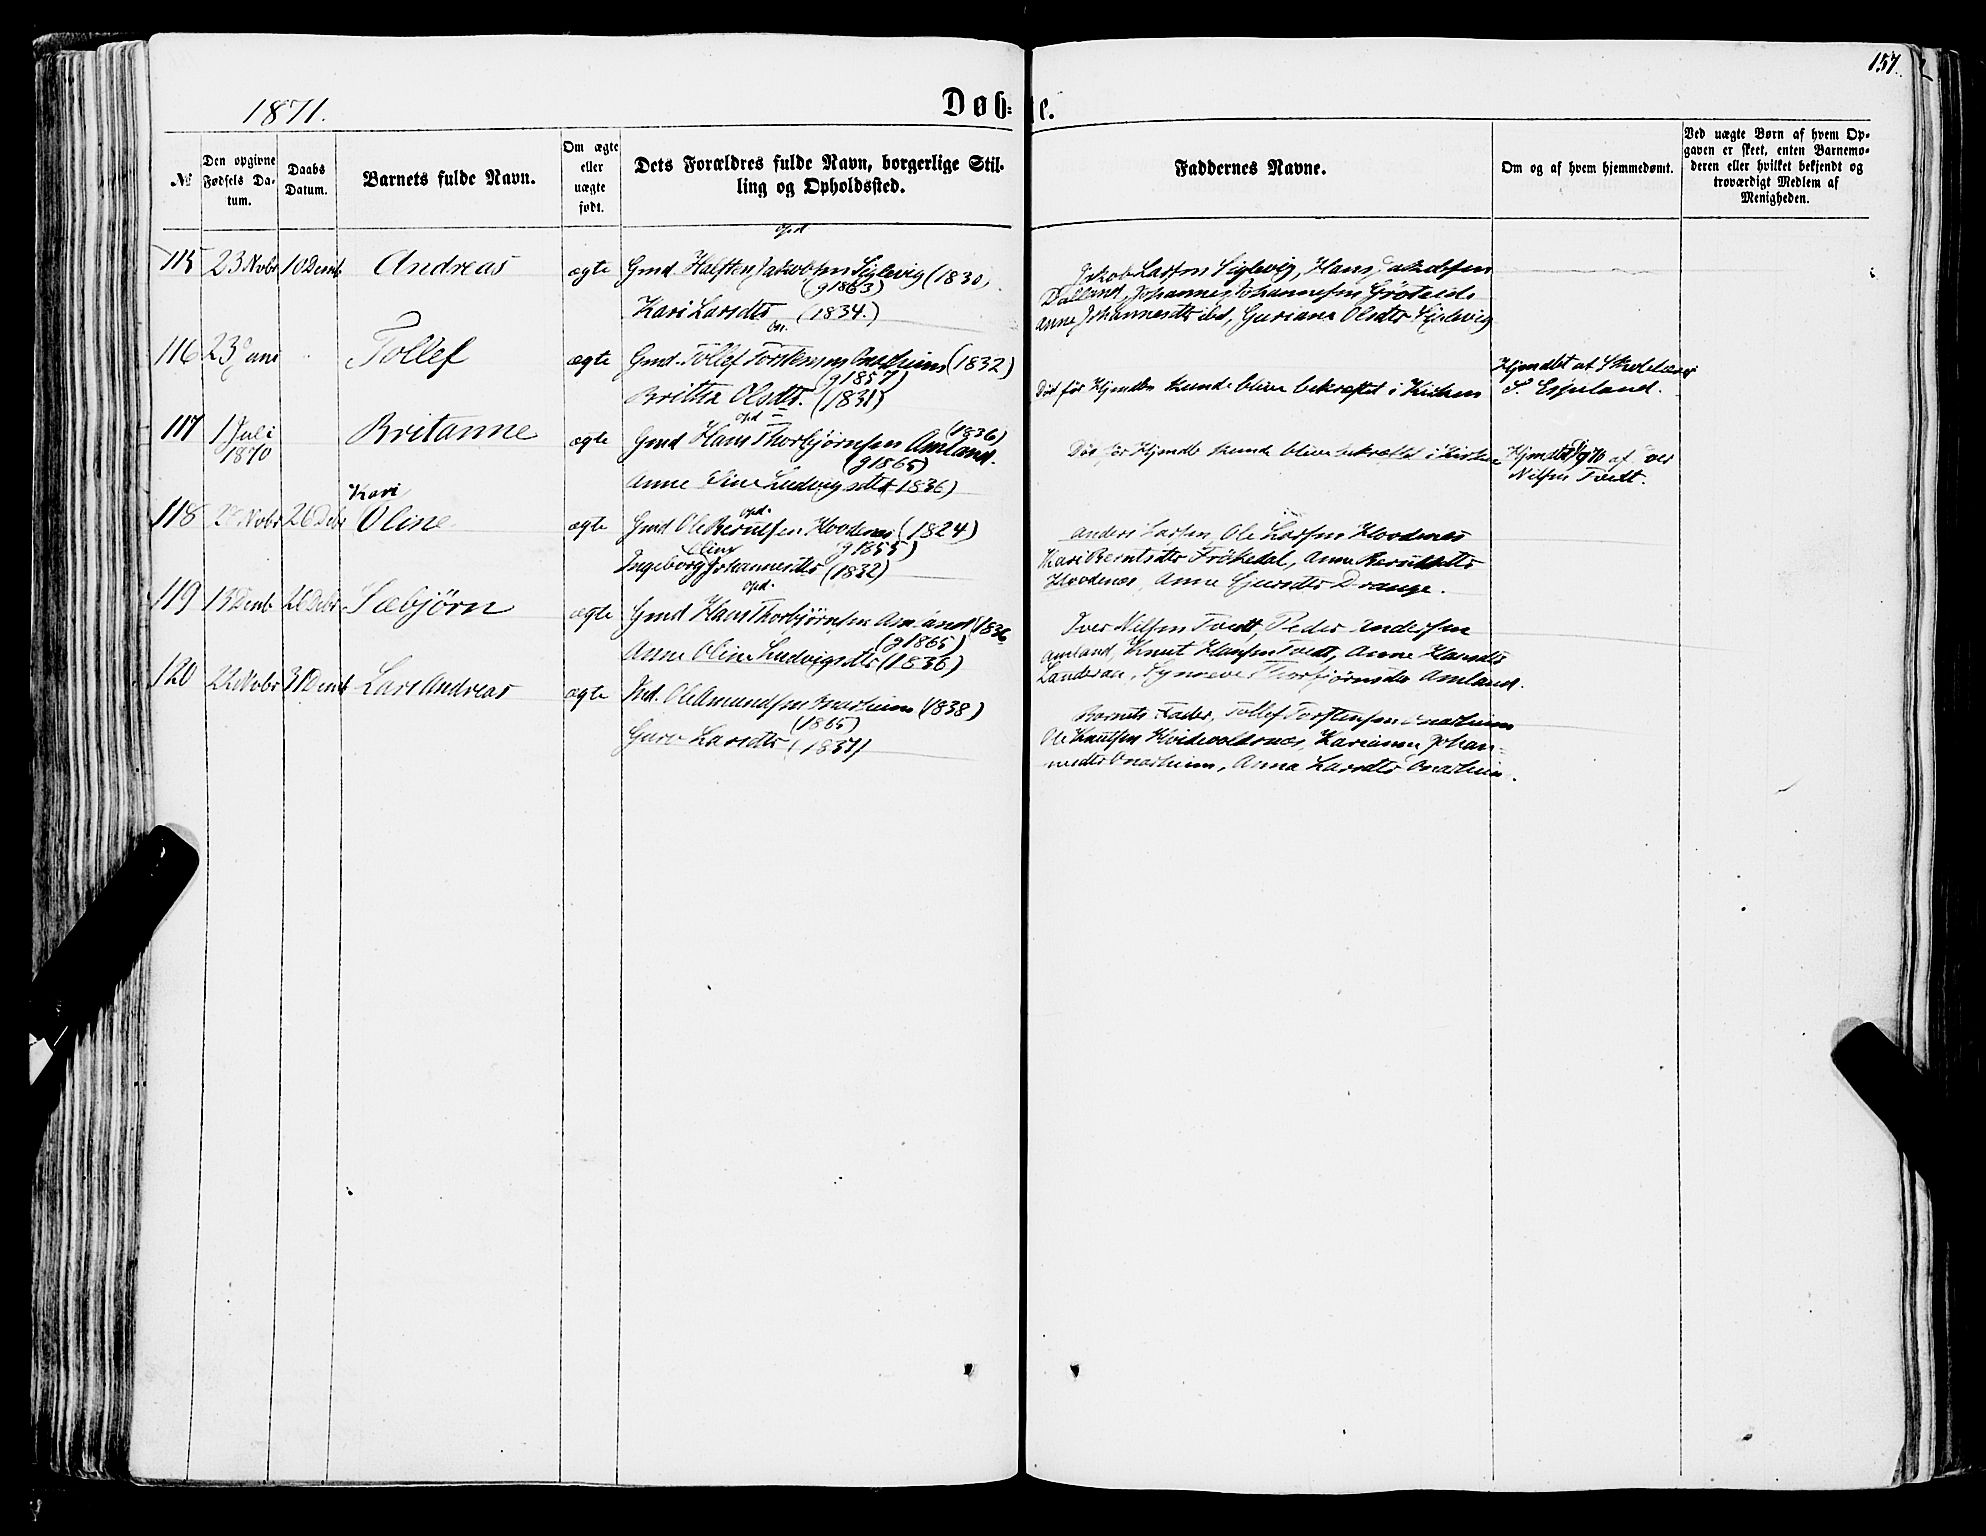 157.
1871.
Døb= te.
№
Den opgivne Fødsels Datum.
Daabs Datum.
Barnets fulde Navn.
Om ægte eller uægte født.
Dets Forældres fulde Navn, borgerlige Stilling og Opholdssted.
Faddernes Navne.
Om og af hvem hjemmedømt.
Ved uægte Børn af hvem Opgaven er skeet, enten Barnemoderen eller hvilket bekjendt og troværdigt Medlem af Menigheden.
opd
115 23 Novbr 10 Decmb Andreas ægte Gmd. Halsten Jakobsen Siglevig (1830)
(g 1863)
Kari Larsdtr (1834.)
Jakob Larsen Siglevig, Hans Jakobsen
Dalland, Johannes Johannesen
Anne Johannesdtr ibd, Guriane Olsdtr
116 23 Juni Tollef ægte Gmd. Tollef Torstensen Onarheim (1832)
(g 1857)
Britha Olsdtr. (1831)
Død før Hjemdbn kunde blive bekræftet i Kirken
Hjemdbt af Skolelærer
S. Espeland.
opd
117 1 Juli Britanne ægte Gmd Hans Thorbjørnsen Amland. (1836)
1870
(g 1865)
Anne Oline Ludvigsdtr (1836)
Død før Hjemdb kunde blive bekræftet i Kirken
Hjemdbt af Iver
Nilsen Tvedt.
Kari
opd.
118 Novbr 26 Debr Oline ægte Gmd Ole Berntsen Hovdenes (1824)
Oline g 1855)
Ingeborg Johannesdtr (1832)
Anders Larsen, Ole Larsen Hovdenes
Kari Berntsdtr Frøkedal, Anne Berntsdtr
Hovdenes, Anne Sjursdtr Drange.
opd.
119 13 Decmb 26 Debr Sæbjørn ægte Gmd Hans Thorbjørnsen Amland (1836
(g 1865)
Anne Oline Ludvigsdtr (1836)
Iver Nilsen Tvedt, Peder Andersen
Amland, Knut Hansen Tvedt, Anne Hansdtr
Landeraa, Synneve Thorbjørnsdtr Amland.
120 22 Novbr 31 Decmb Lars Andreas ægte Ind. Ole Amundsen Onarheim (1838)
(1865)
Guro Larsdtr (1837)
Barnets Fader, Tollef Torstensen Onarheim
Ole Knutsen Hvidevoldsnes, Karianne Johan=
nesdtr Onarheim, Anna Larsdtr Onarheim.